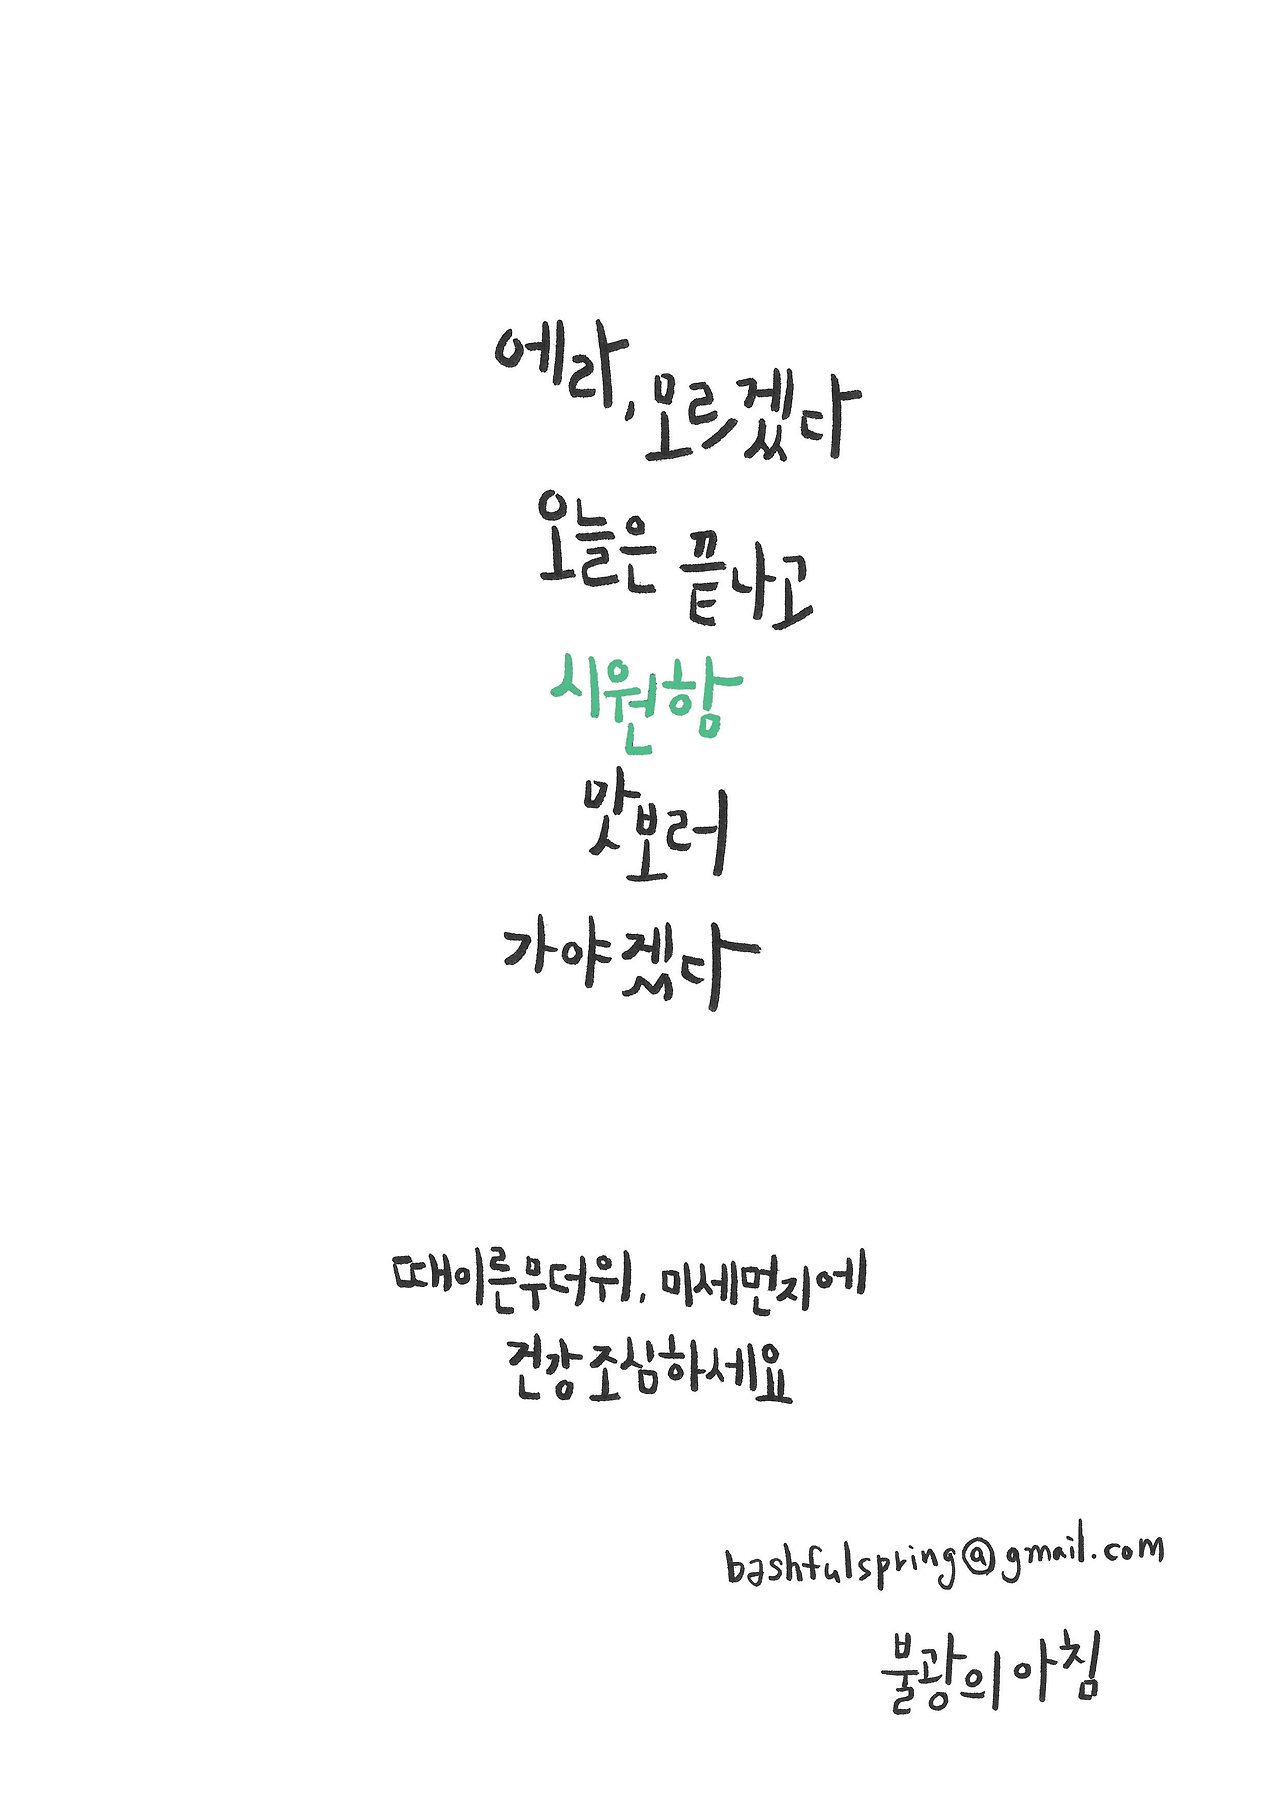 에라, 모르겠다
오늘은 끝나고
시원함
맛보러
가야겠다
때이른무더위, 미세먼지에
건강조심하세요
bashfulspring@gmail.com
불광의 아침